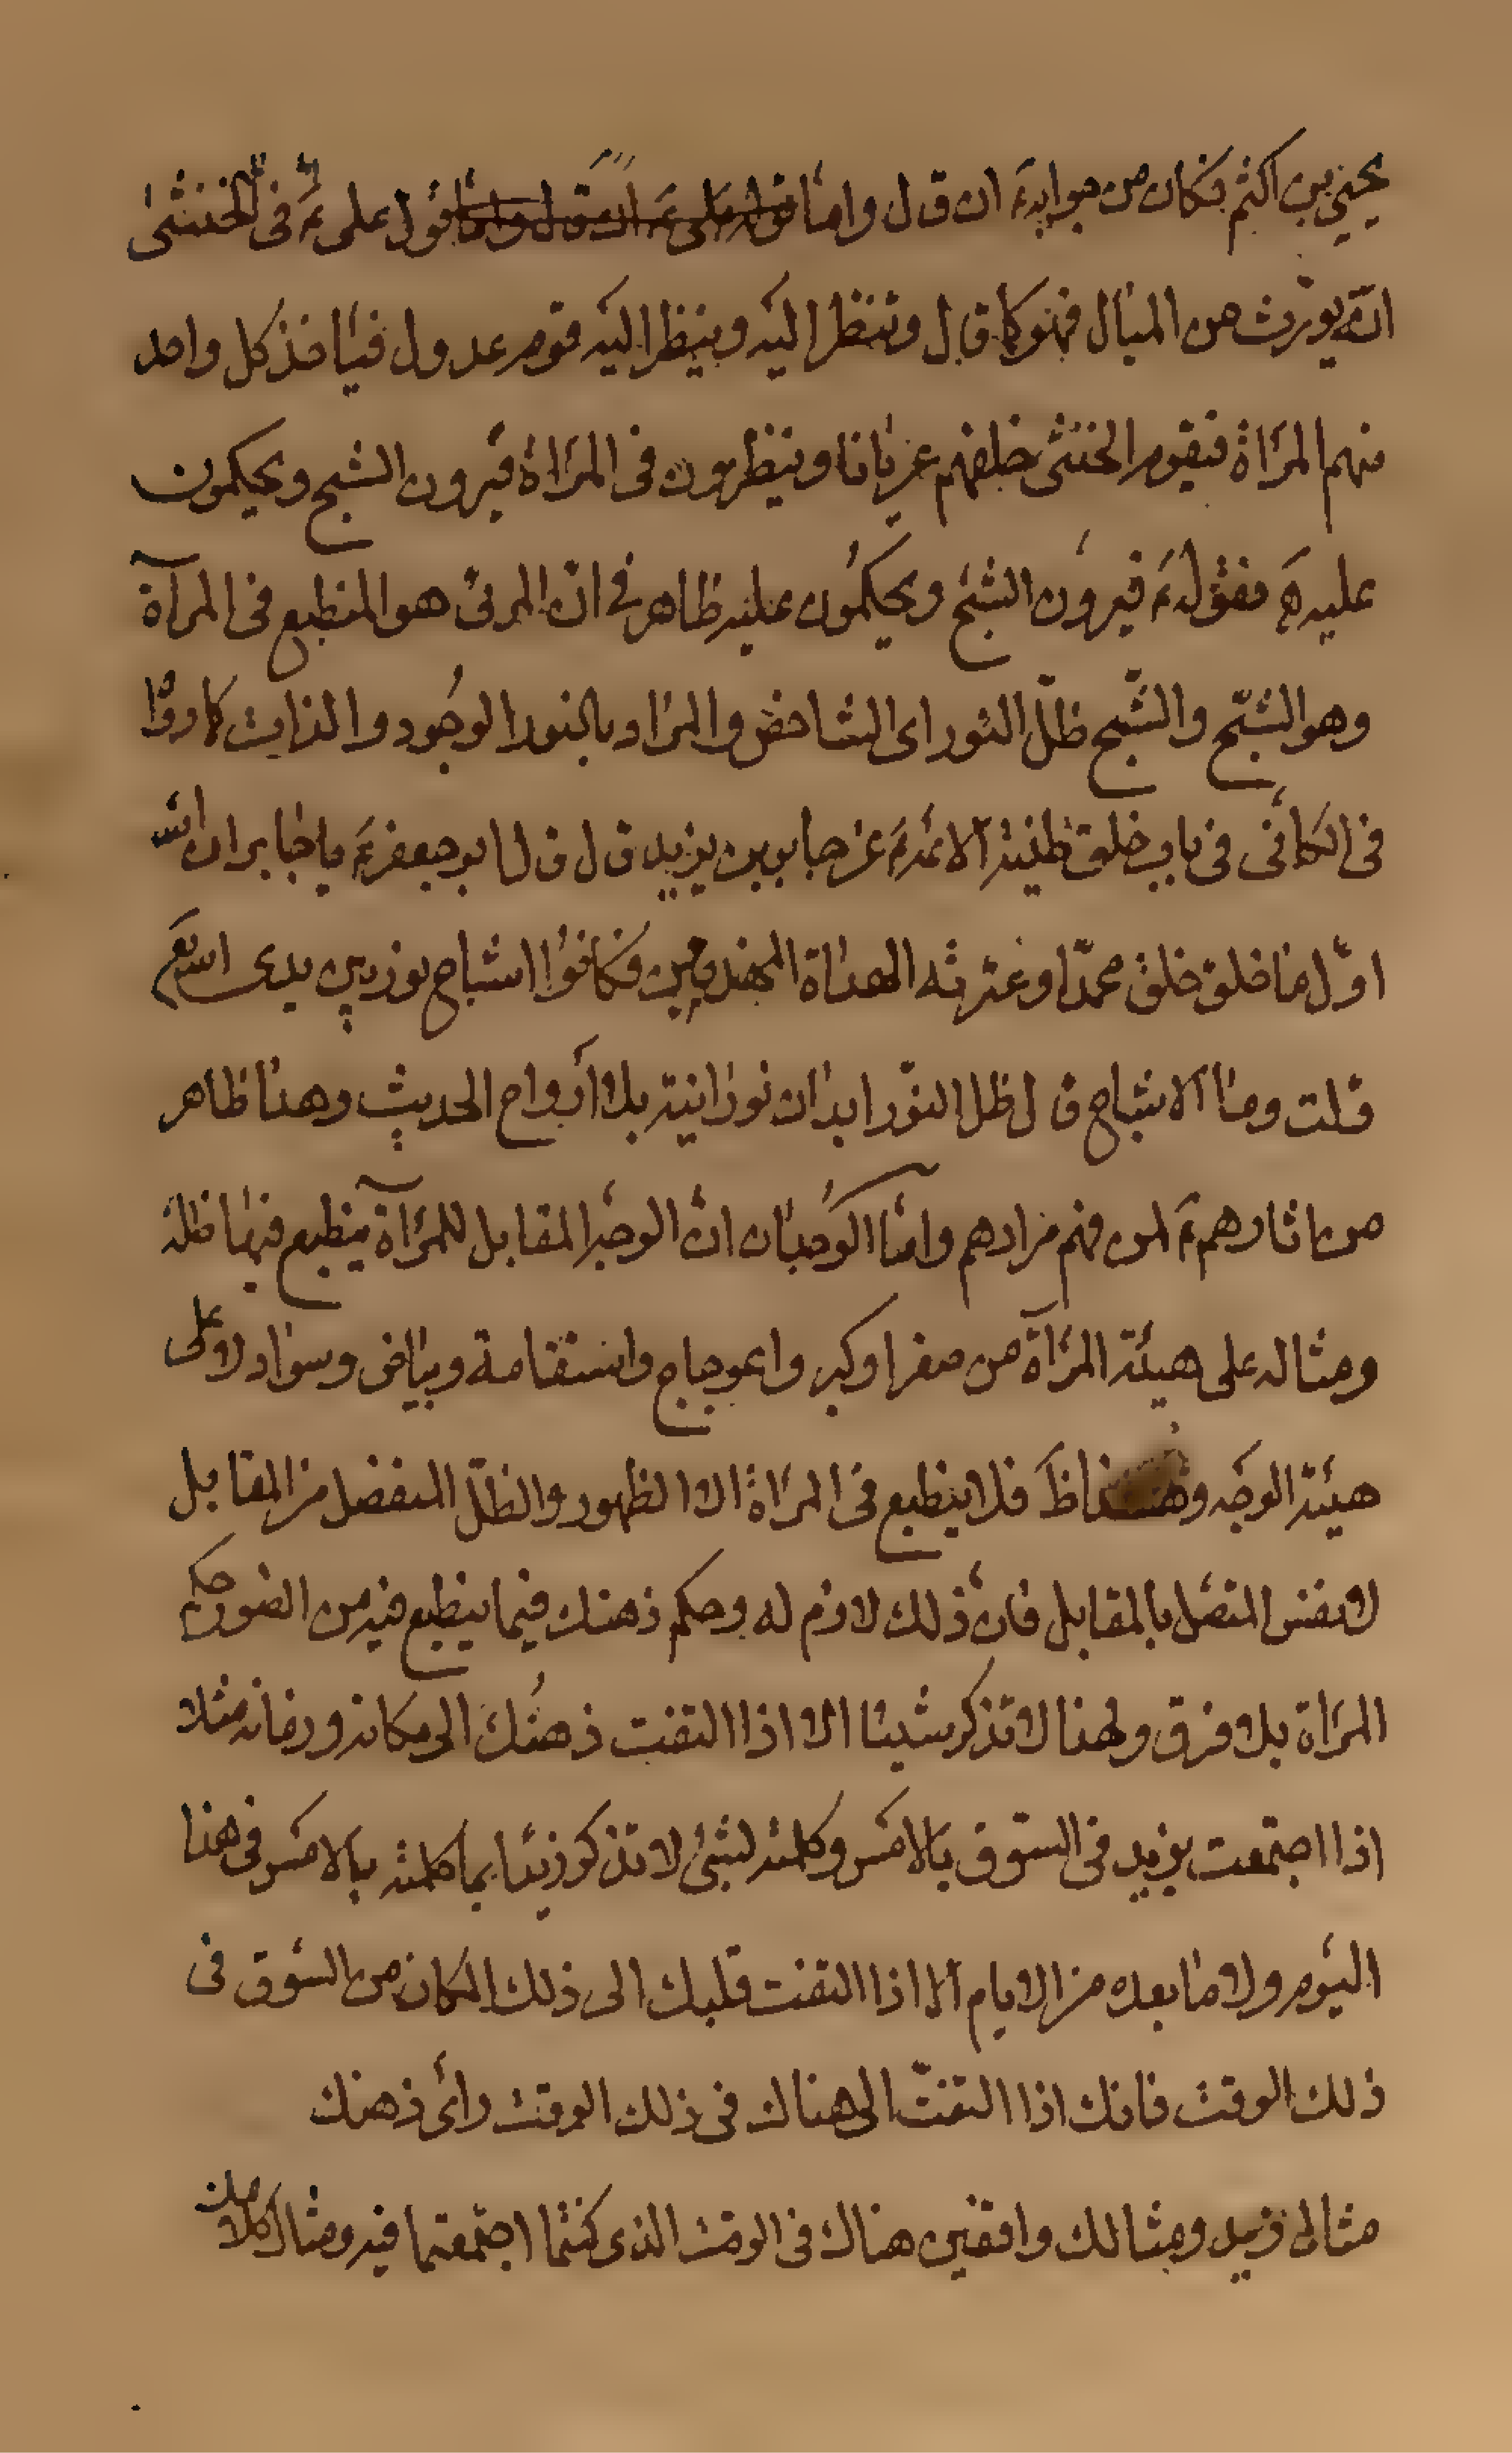 يحيى بن اكثم فكان من جوابه ع ان قال واما قول علي ع في الخنثى
انّه يورّث من المبال فهو كما قال وتنظر اليه وينظر اليه قوم عدول فيأخذ كل واحد
منهم المرآة فيقوم الخنثى خلفهم عريانا وينظرون في المرآة فيرون الشبح ويحكمون
عليه ه فقوله ع فيرون الشبح ويحكمون عليه ظاهر في انّ المرئى هو المنطبع في المرآة
وهو الشبح والشّبح ظلّ النور اى الشاخص والمراد بالنور الوجود والذات كما روا
في الكافى في باب خلق طينة الائمة ع عن جابر بن يزيد قال قال ابو جعفر ع يا جابر ان الله
اوّل ما خلق خلق محمدّا وعترته الهداة المهتدين فكانوا اشباح نور بين يدى الله
قلت وما الاشباح قال ظل النّور ابدان نورانية بلا أرواح الحديث وهذا ظاهر
من اثارهم ع لمن فهم مرادهم وامّا الوجدان انّ الوجه المقابل للمرآة ينطبع فيها ظله
ومثاله على هيئة المرآة من صغر او كبر واعوجاج واستقامة وبياض وسواد لا على
هيئة الوجه فلا ينطبع في المرآة الا الظهور والظلّ المنفصل من المقابل
لا نفس المتصل بالمقابل فانّ ذلك لازم له وحكم ذهنك فيما ينطبع فيه من الصور حكم
المرآة بلا فرق ولهذا لا تذكر شيئا الا اذا التفت ذهنك الى مكانه وزمانه مثلا
اذا اجتمعت بزيد في السّوق بالامس وكلمته لشئ لا تذكر زيدا بما كلمته بالامس في هذا
اليوم ولا ما بعده من الايام الا اذا التفت قلبك الى ذلك المكان من السوق في
ذلك الوقت فانك اذا التفتّ الى هناك في ذلك الوقت رأى ذهنك
مثال زيد ومثالك واقفين هناك في الوقت الذى كنتما اجتمعتما فيه ومثال كلامك